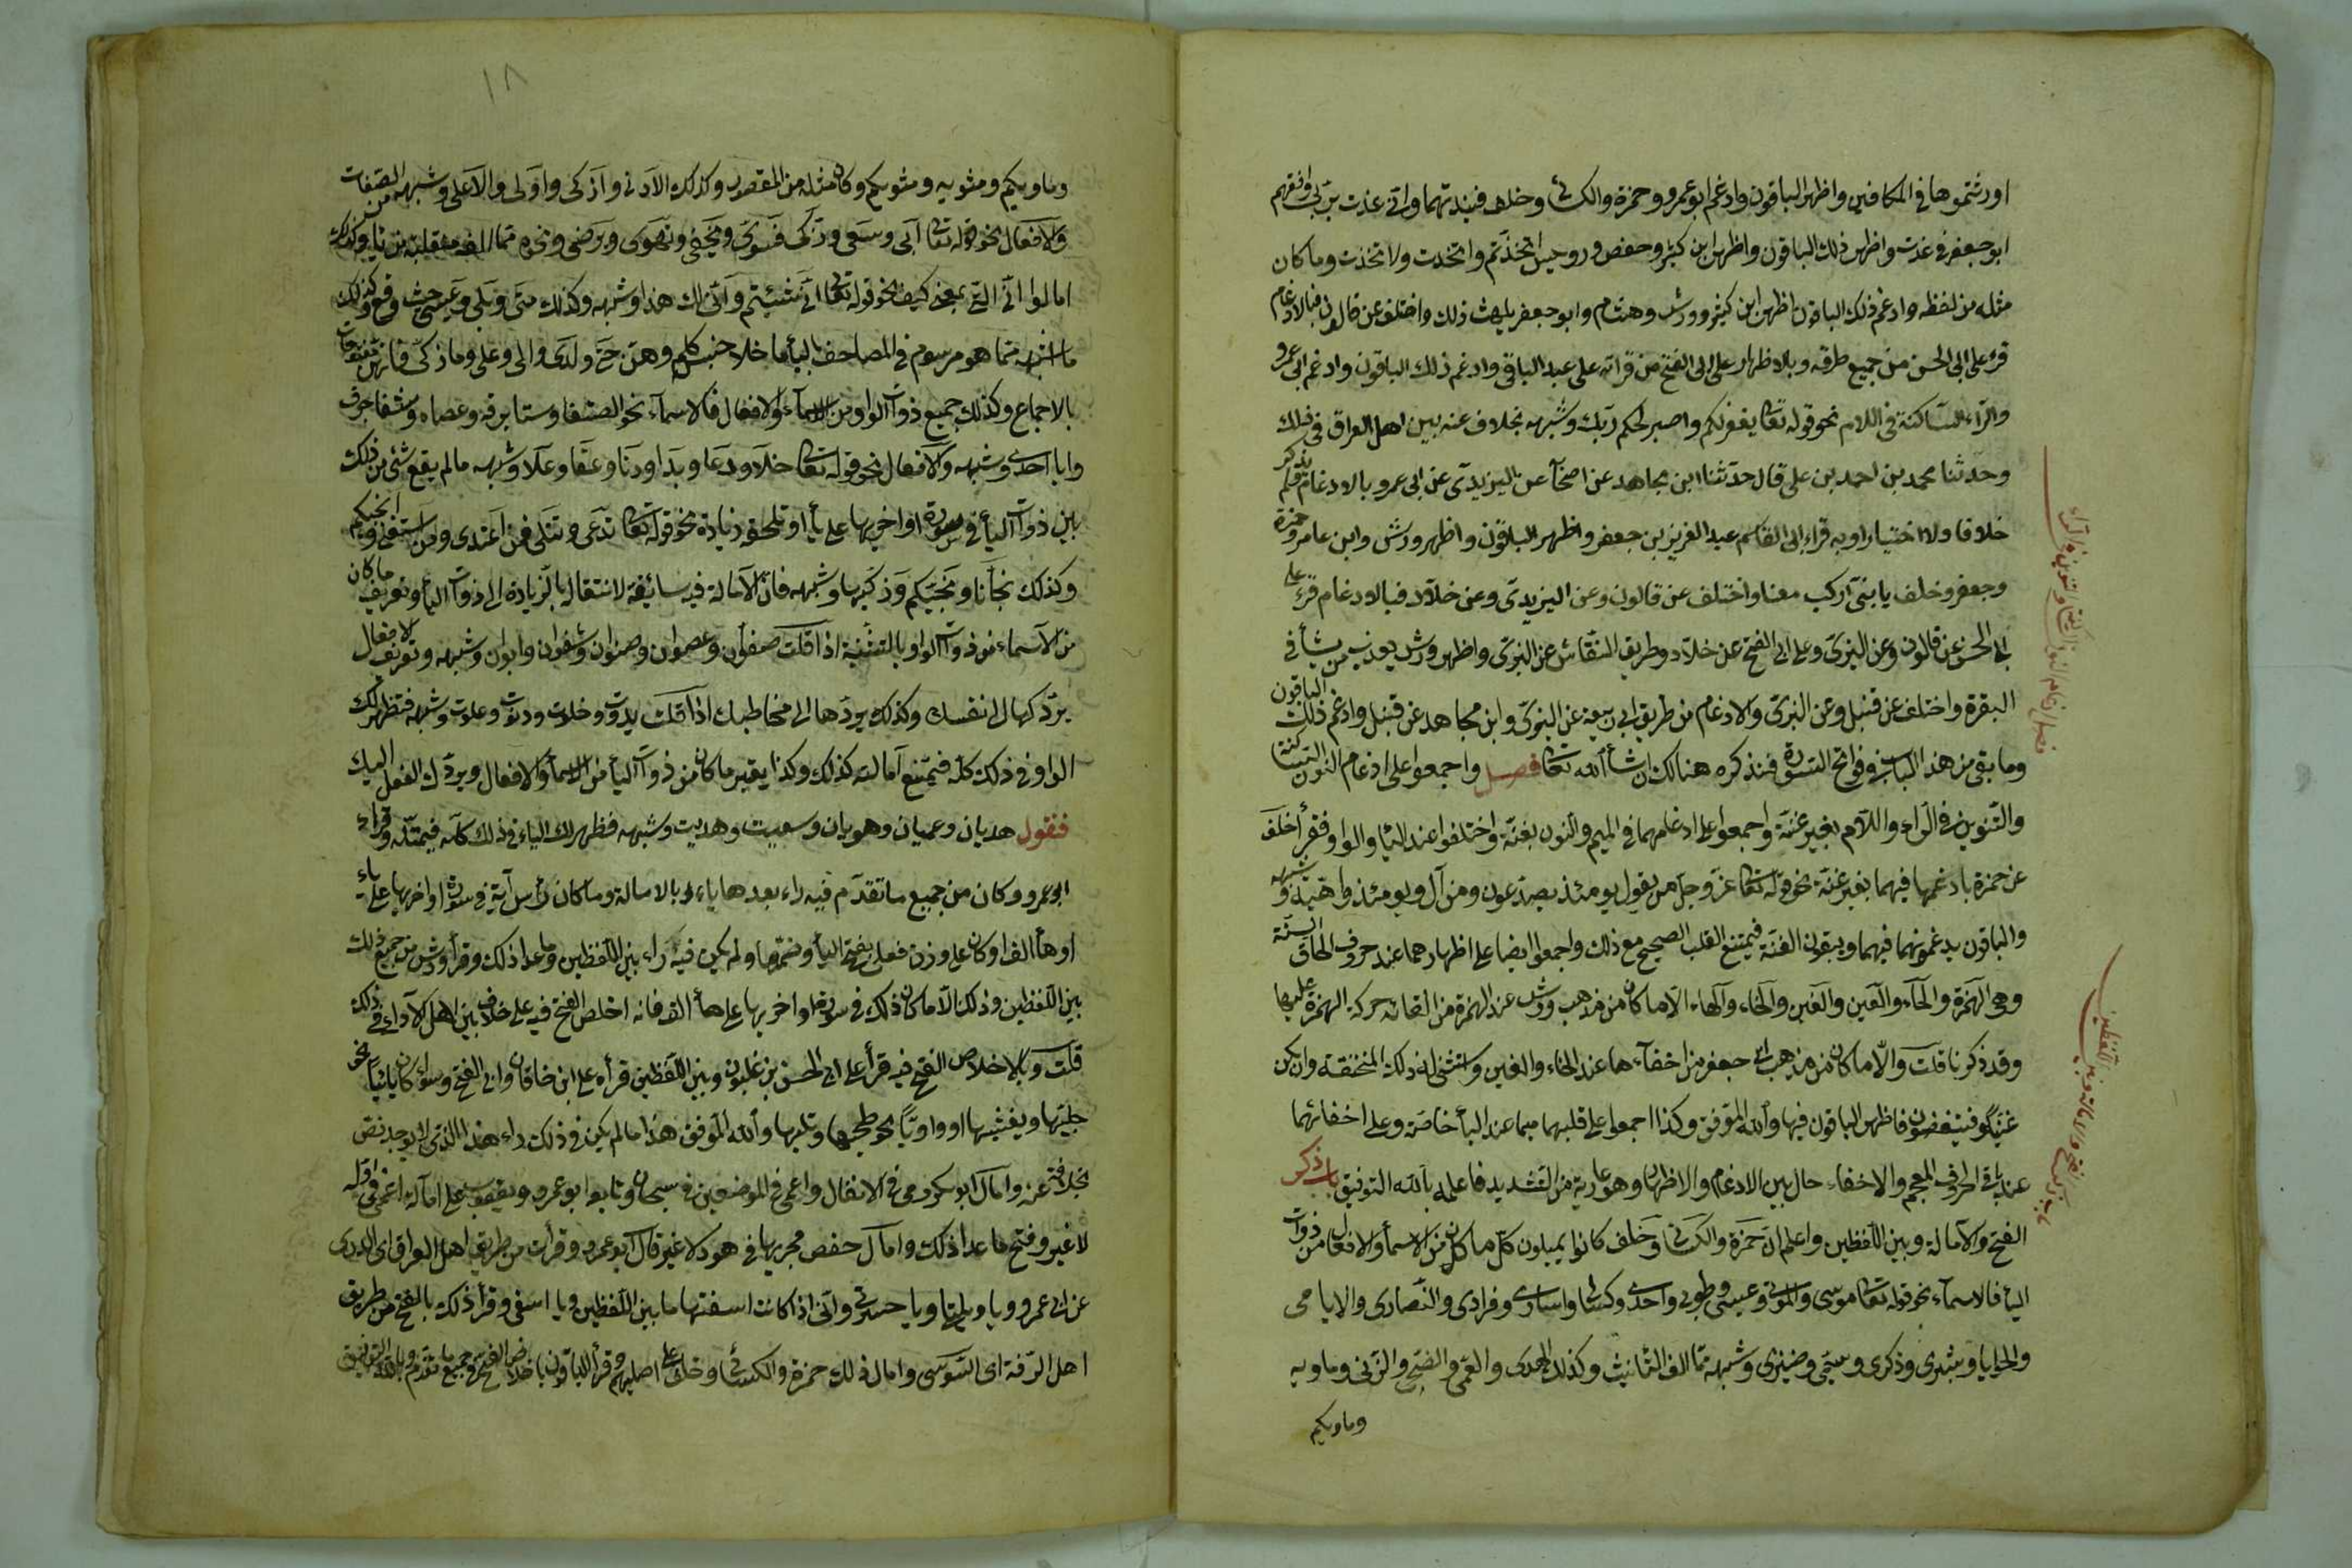 اورثتموها في المكانين واظهر الباقون وادغم ابو عمرو وحمزة والكسائي وخلف فنبذتهما واني عذت بربي وافقهم
ابو جعفر في عذت واظهر ذلك الباقون واظهر ابن كثير وحفص ورويس اتخذتم واتخذت ولاتخذت وما كان
مثله من لفظه وادغم ذلك الباقون اظهر ابن كثير وورش وهشام وابو جعفر يلهث ذلك واختلف عن قالون فبالادغام
قرء على ابي الحسن من جميع طرقه وبالاظهار على ابي الفتح من قراته على عبد الباقي وادغم ذلك الباقون وادغم ابو عمرو
والراء الساكنة في اللام نحو قوله تعالى يغفر لكم واصبر لحكم ربك وشبهه بخلاف عنه بين اهل العراق في ذلك
وحدثنا محمد بن احمد بن علي قال حدثنا ابن مجاهد عن اصحابه عن اليزيدي عن ابي عمرو بالادغام ولم يذكر
خلافا ولا اختيارا وبه قراء ابي القاسم عبد العزيز بن جعفر واظهر الباقون واظهر ورش وابن عامر وحمزة
وجعفر وخلف يا بني اركب معنا واختلف عن قالون وعن اليزيدي وعن خلاد فبالادغام قرء على
ابي الحسن عن قالون وعن البزي وعلى ابي الفتح عن خلاد وطريق النقاش عن البزي واظهر ورش يعذب من يشاء في
البقرة واختلف عن قنبل وعن البزي والادغام من طريق ابي ربيعة عن البزي وابن مجاهد عن قنبل وادغم ذلك الباقون
وما بقي من هذا الباب في فواتح السورة فنذكره هنالك ان شاء الله تعالى فصل واجمعوا على ادغام النون الساكنة
والتنوين في الراء واللام بغير غنة واجمعوا على ادغامهما في الميم والنون بغنة واختلفوا عند الياء والواو فقرأ خلف
عن حمزة بادغمها فيهما بغير غنة نحو قوله تعالى عز وجل من يقول يومئذ يصدعون ومن آل ويومئذ واهية وشبهه
والباقون يدغمونهما فيهما ويبقون الغنة فيمتنع القلب الصحيح مع ذلك واجمعوا ايضا على اظهارهما عند حروف الحلق الستة
وهي الهمزة والحاء والعين والغين والخاء والهاء الا ما كان من مذهب ورش عند الهمزة من القائه حركة الهمزة عليها
وقد ذكرنا قلت والا ما كان من مذهب ابي جعفر من اخفاءها عند الخاء والغين واستثنى له ذلك المنخنقة وان يكن
غنيا وفسينغضون فاظهر الباقون فيها والله الموفق وكذا اجمعوا على قلبهما ميما عند الباء خاصة وعلى اخفائهما
عند باقي الحروف المعجم والاخفاء حال بين الادغام والاظهار وهو عارية من التشديد فاعلمه بالله التوفيق باب ذكر
الفتح والامالة وبين اللفظين واعلم ان حمزة والكسائي وخلف كانوا يميلون كل ما كان من الاسماء والافعال من ذوات
الياء فالاسماء نحو قوله تعالى موسى والموتى وعيسى وطوبى واحدى وكسالى واسارى وفرادى والنصارى والايامى
والحوايا وبشرى وذكرى وسيمى وضيزى وشبهه مما الف التانيث وكذلك الهدى والعمى والضحى والزنى وماويه
وماويكم
فصل ادغام النون الساكنة والتنوين في الراء
باب ذكر الفتح والامالة وبين اللفظين
١٨
وماويكم ومثويه ومثويكم وكان مثله من المقصور وكذلك الادنى وازكى واولى والاعلى وشبهه من الصفات
والافعال نحو قوله تعالى ابى وسعى وزكى فسوى ويخفى وتهوى ويرضى ونحوه مما الفه منقلبة من ياء وكذلك
امالوا انى التي بمعنى كيف نحو قوله تعالى انى شئتم وانى لك هذا وشبهه وكذلك متى وبلى وعسى حيث وقع وكذلك
ما اشبهه مما هو مرسوم في المصاحف بالياء ما خلا خمس كلم وهن حتى ولدى والى وعلى وما زكى فانهن مفتوحات
بالاجماع وكذلك جميع ذوات الواو من الاسماء والافعال فالاسماء نحو الصفا وسنا برقه وعصاه وشفا جرف
وابا احدى وشبهه والافعال نحو قوله تعالى خلا ودعا وبدا ودنا وعفا وعلا وشبهه مالم يقع شيء من ذلك
بين ذوات الياء في سورة اواخرها على ياء او تلحقه زيادة نحو قوله تعالى تدعى وتتلى فمن اعتدى ومن استعلى وانجيكم
وكذلك نجانا ونجيكم وزكيها وشبهه فان الامالة فيه سائغة لانتقاله بالزيادة الى ذوات الياء وتعريف ما كان
من الاسماء من ذوات الواو بالتثنية اذا قلت صفوان وعصوان وصنوان وشفوان وابوان وشبهه وتعريف الافعال
بردكها الى نفسك وكذلك يردها الى مخاطبك اذا قلت بدوت وخلوت ودنوت وعلوت وشبهه فتظهر لك
الواو في ذلك كله فيمتنع امالته كذلك وكذا يعتبر ما كان من ذوات الياء من الاسماء والافعال وبردك الفعل اليك
فنقول هديان وعميان وهويان وسعيت وهديت وشبهه فظهر لك الياء في ذلك كله فيمتله وقراء
ابو عمرو وكان من جميع ما تقدم فيه راء بعدها ياء بالامالة وما كان رأس آية في سورة اواخرها على ياء
او هاء الف او كان على وزن فعلى بفتح الياء وضمها ولم يكن فيه راء بين اللفظين وما عدا ذلك وقرأ ورش من جميع ذلك
بين اللفظين وذلك الا ما كان ذلك في سورة اواخرها على هاء الف فانه اخلص الفتح فيه على خلاف بين اهل الاداء في ذلك
قلت وبالاخلاص الفتح فيه قرأ على ابي الحسن بن غلبون وبين اللفظين قرأه على ابن خاقان وابي الفتح وسواء كان يائيا نحو
جليها ويغشيها او واويا نحو طحيها وتليها والله الموفق هذا ما لم يكن في ذلك راء هذا الذي لا يوجد نص
بخلافه عنه وامال ابو بكر رمى في الانفال واعمى في الموضعين في سبحان وتابعه ابو عمرو ويعقوب على امالة اعمى في اوله
لا غير وفتح ما عدا ذلك وامال حفص مجريها في هود لا غير قال ابو عمرو وقرأت من طريق اهل العراق اي الدوري
عن ابي عمرو ويا ويلتا ويا حسرتى وانى اذا كانت استفتها ما بين اللفظين ويا اسفى وقرأ ذلك بالفتح من طريق
اهل الرقة اي السوسي وامال ذلك حمزة والكسائي وخلف على اصلهم وقرأ الباقون باخلاص الفتح في جميع ما تقدم وبالله التوفيق